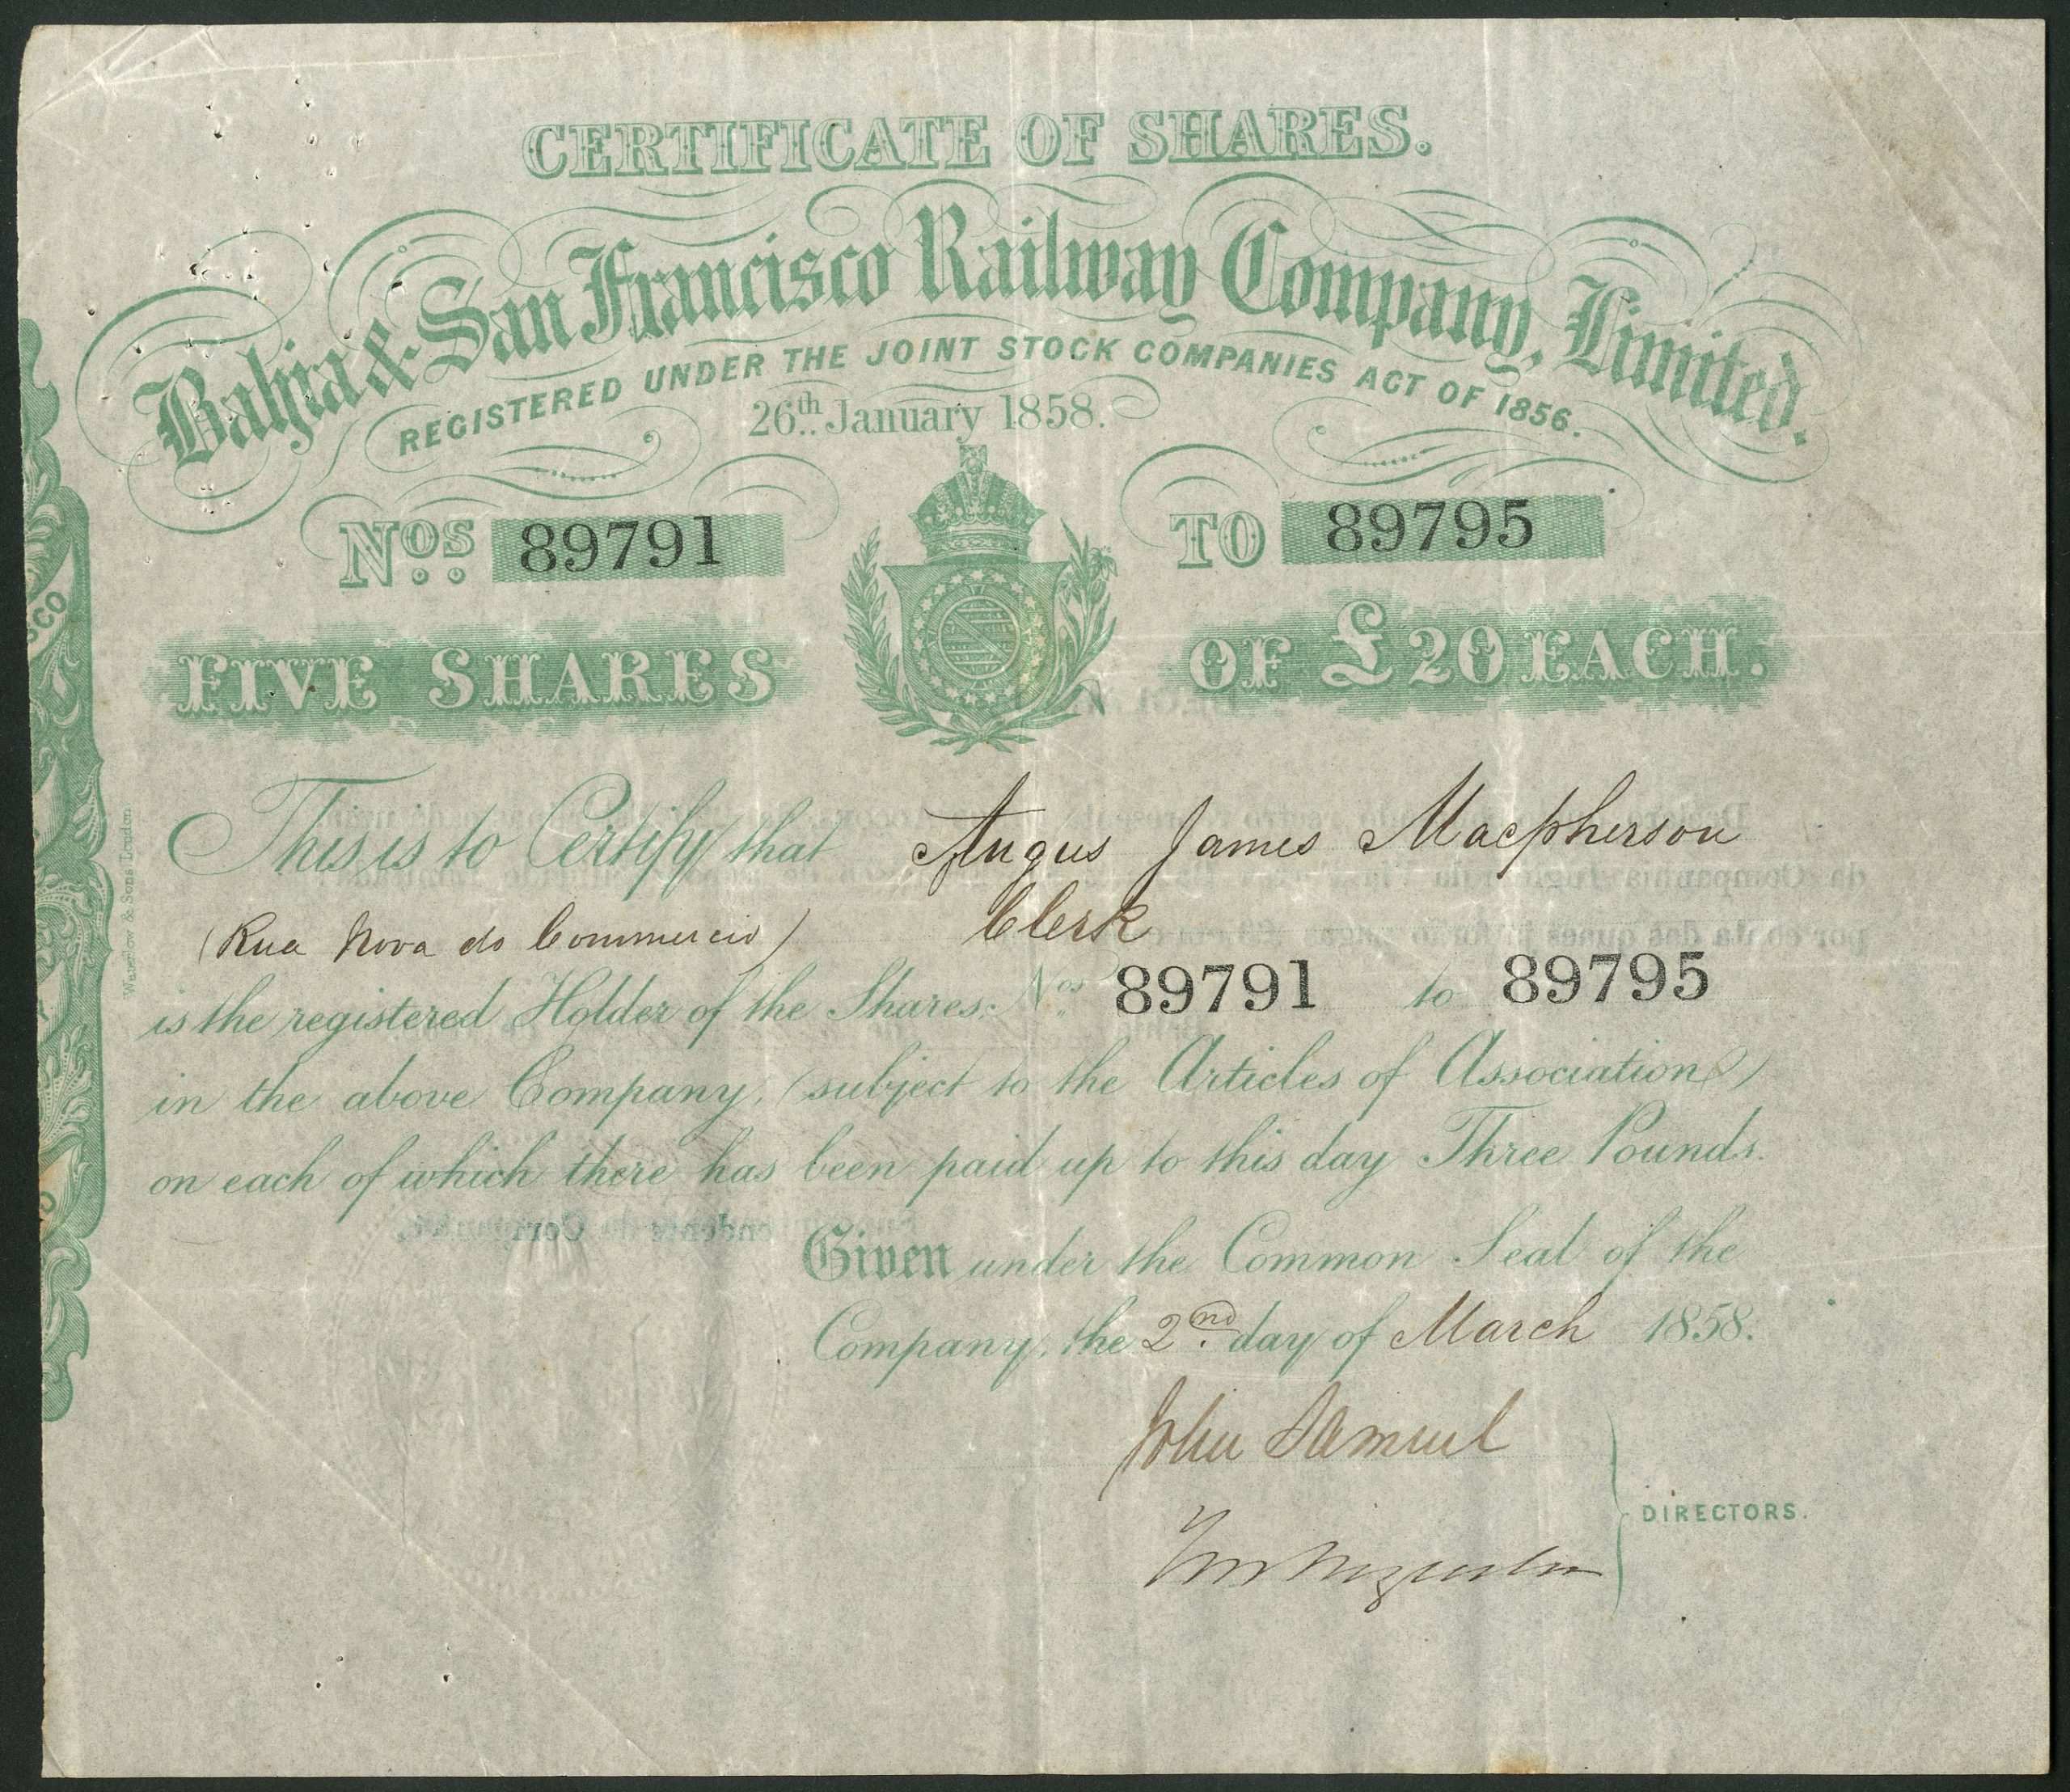 CERTIFICATE OF SHARES.
Bahia & San Francisco Railway Company, Limited.
REGISTERED UNDER THE JOINT STOCK COMPANIES ACT OF 1856.
26th January 1858.
Nos 89791 TO 89795
FIVE SHARES OF £20 EACH.
This is to Certify that Angus James Macpherson
(Rua Nova do Commercio) Clerk
is the registered Holder of the Shares Nos 89791 to 89795
in the above Company, (subject to the Articles of Association)
on each of which there has been paid up to this day Three Pounds.
Given under the Common Seal of the
Company, the 2nd day of March 1858.
John Samuel
DIRECTORS.
Waterlow & Sons London